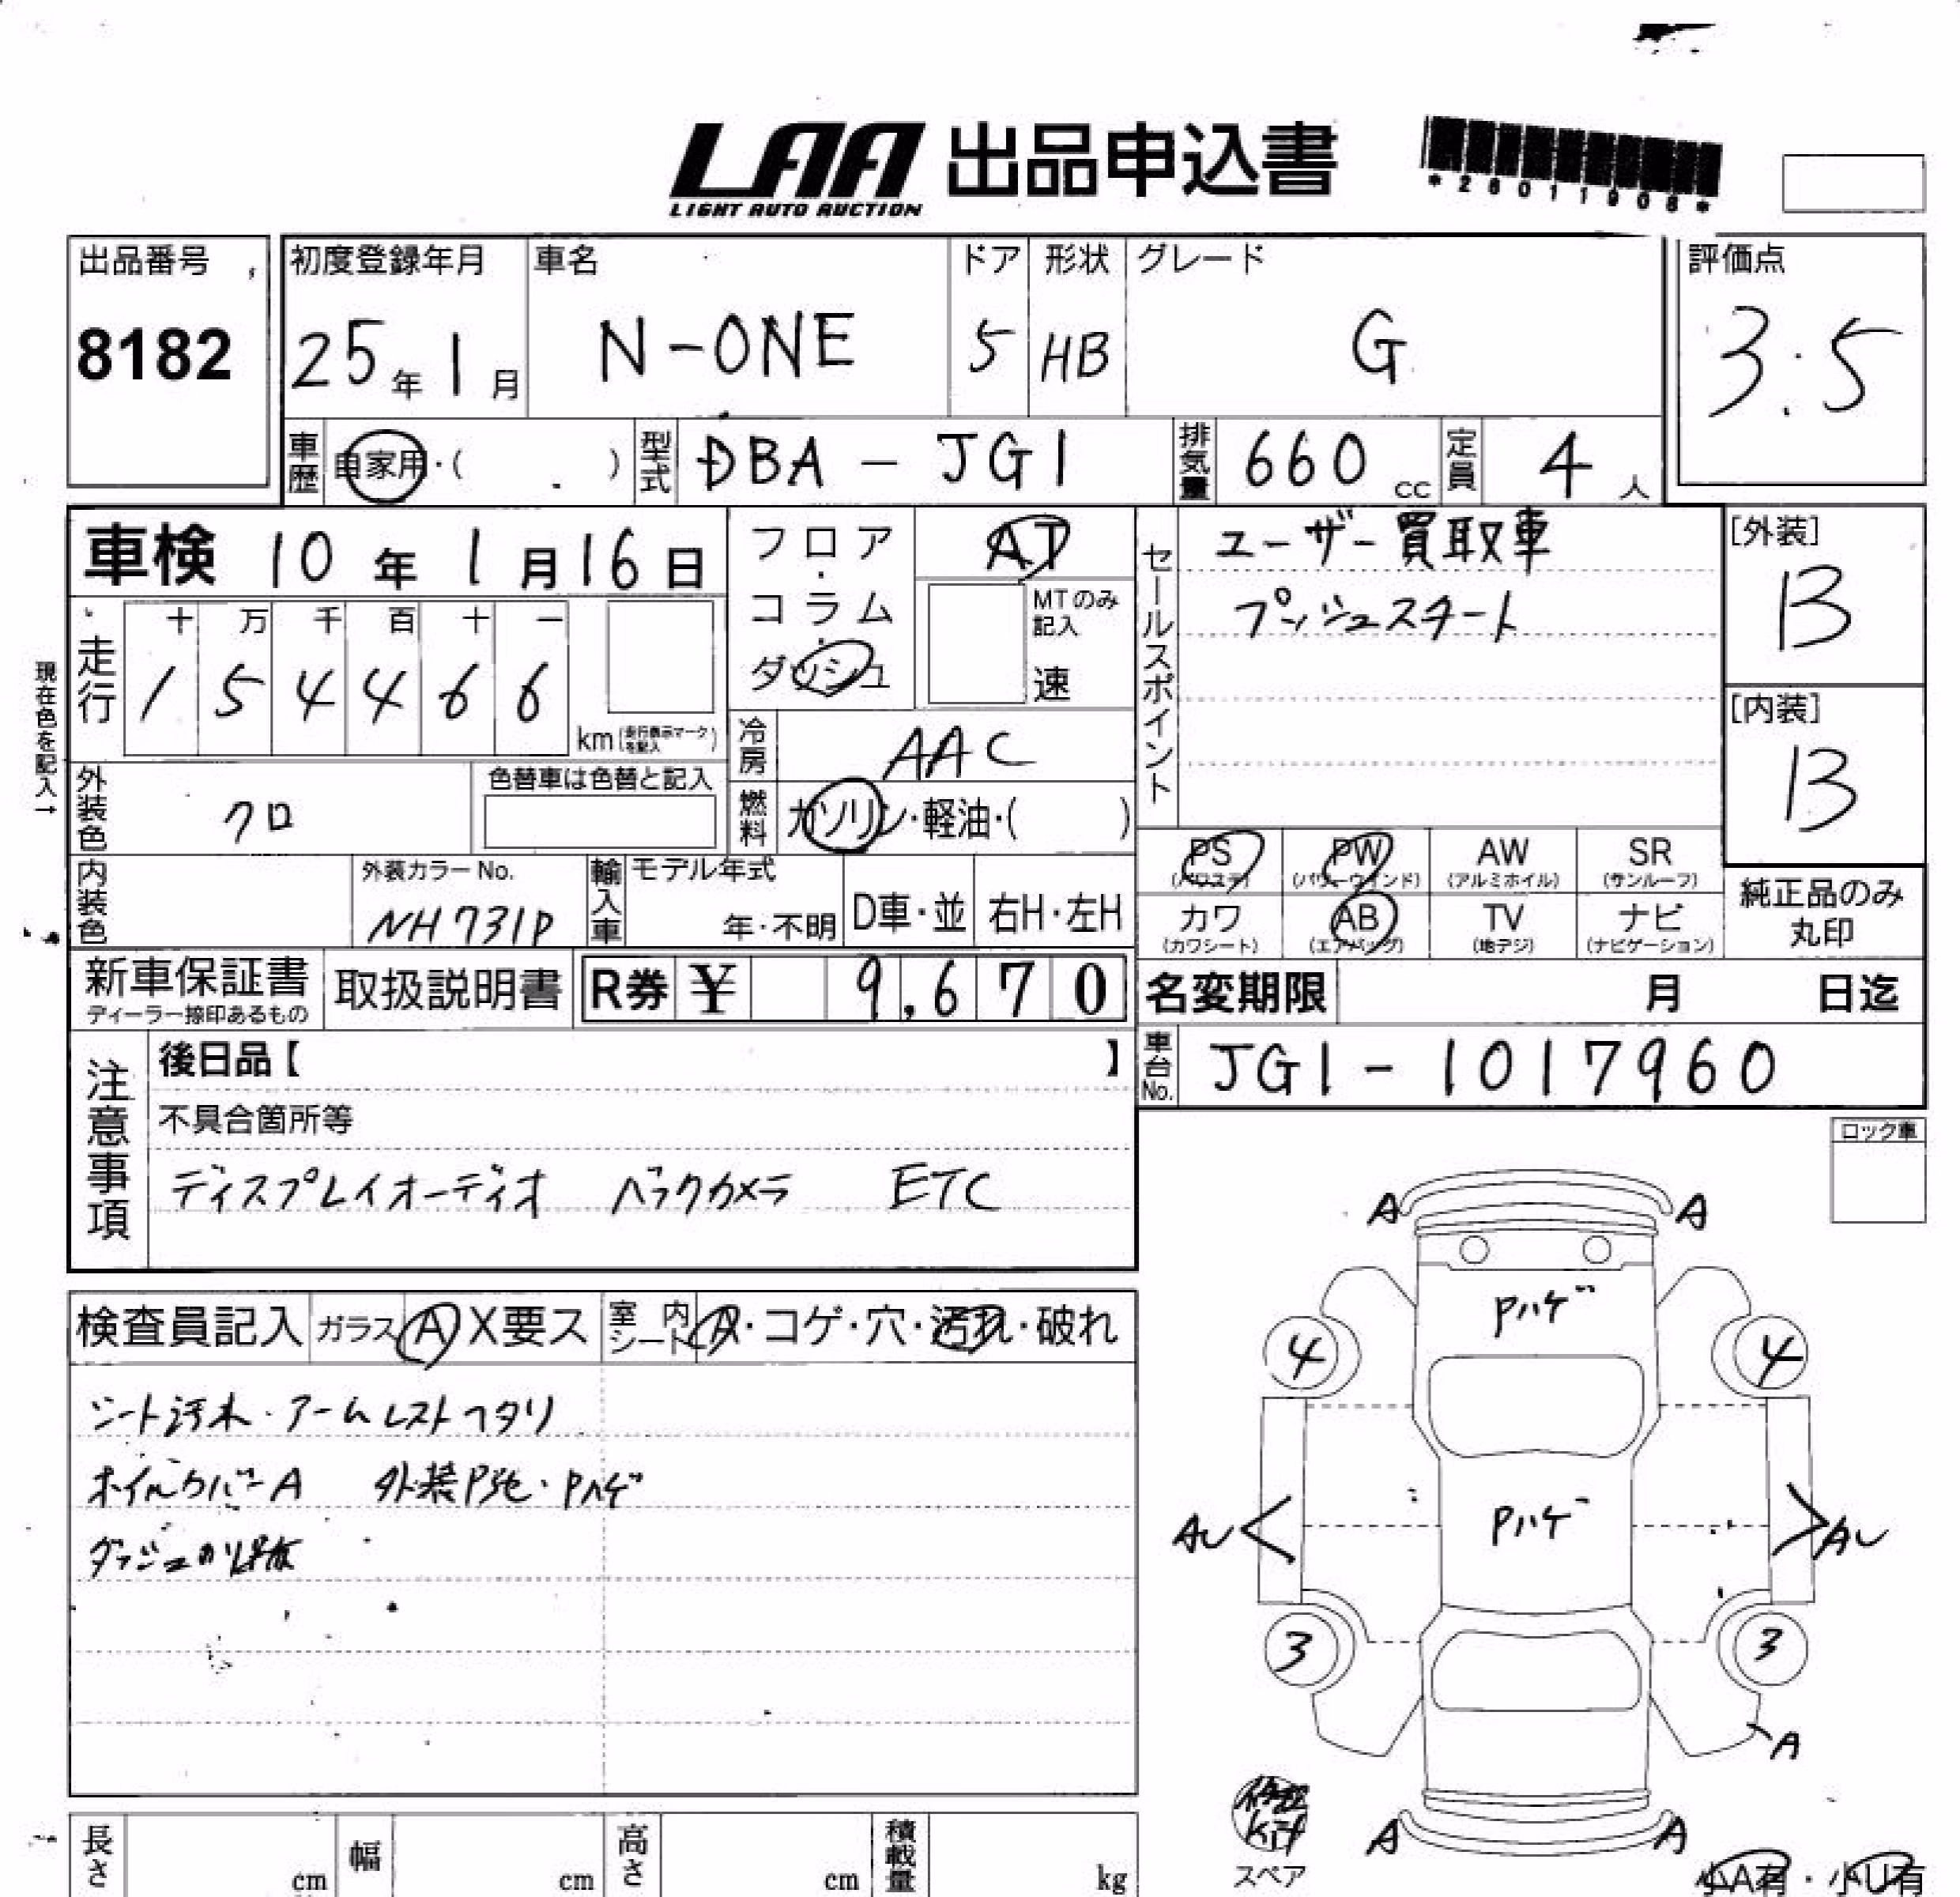 LAA 出品申込書
LIGHT AUTO AUCTION
*26011908*
出品番号
8182
初度登録年月
25年1月
車名
N-ONE
ドア
5
形状
HB
グレード
G
評価点
3.5
車歴 自家用・( )
型式 DBA-JG1
排気量 660 cc
定員 4人
車検 10年1月16日
フロア・コラム・ダッシュ
AT
MTのみ記入
速
セールスポイント
ユーザー買取車
プッシュスタート
[外装]
B
[内装]
B
現在色を記入→
走行
十 万 千 百 十 一
1 5 4 4 6 6
km(走行表示マークを記入)
冷房 AAC
燃料 ガソリン・軽油・( )
外装色 クロ
色替車は色替と記入
内装色
外装カラーNo.
NH731P
輸入車
モデル年式
年・不明
D車・並
右H・左H
PS (パワステ)
PW (パワーウインド)
AW (アルミホイル)
SR (サンルーフ)
カワ (カワシート)
AB (エアバッグ)
TV (地デジ)
ナビ (ナビゲーション)
純正品のみ丸印
新車保証書
ディーラー捺印あるもの
取扱説明書
R券 ¥ 9,670
名変期限 月 日迄
車台No. JG1-1017960
注意事項
後日品【 】
不具合箇所等
ディスプレイオーディオ バックカメラ ETC
ロック車
検査員記入
ガラス A X要ス
室内シート A・コゲ・穴・汚れ・破れ
シート汚れ・アームレストヘタリ
ホイルカバーA 外装P色・Pハゲ
A A
Pハゲ
4 4
Pハゲ
AU AU
3 3
A
A A
修理kit
スペア
小A有・小U有
長さ cm
幅 cm
高さ cm
積載量 kg